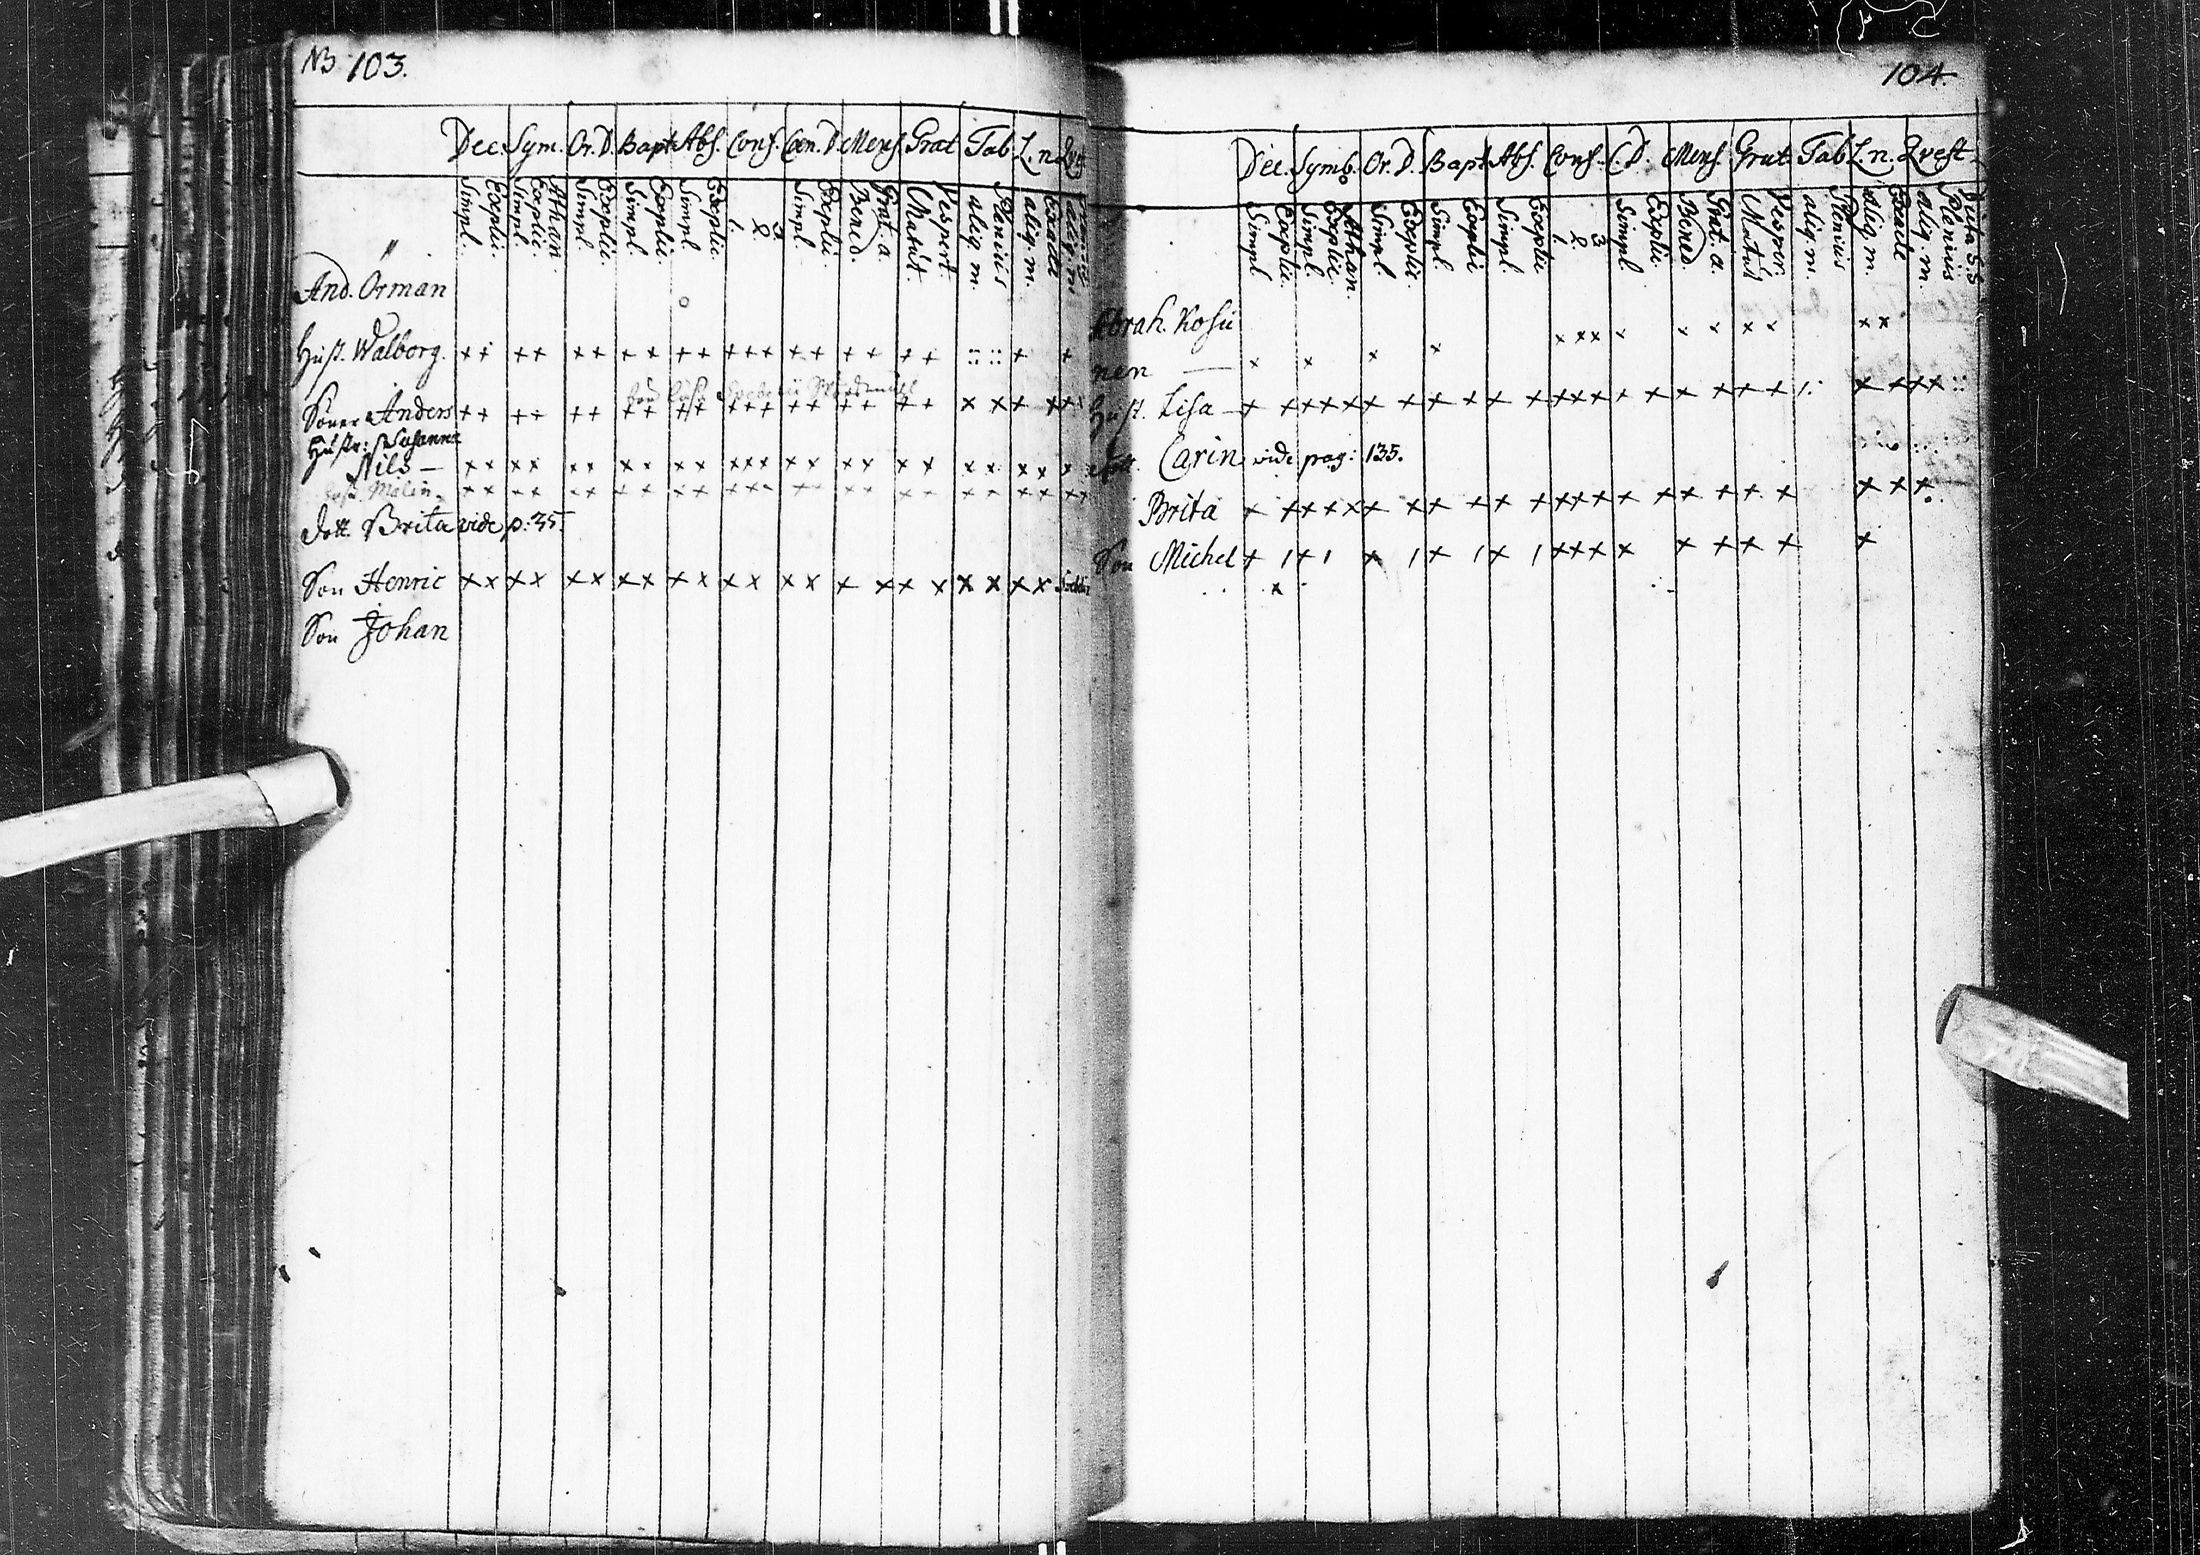 NB 103.
Dec. Sym. Or. D. Bapt. Abs. Conf. Cœn. D. Mens. Grat Tab. L. n. Qvest
Simpl. Explic. Simpl. Explic. Athan. Simpl. Explic. Simpl Explic. Simpl Explic. 1. 2. 3 Simpl. Explic. Bened. Grat. a. Matut. Vespert. aliq. m. Plenius aliq. m. Exacte aliq. m
And. Örman
Hust. Walborg. ++ ++ ++ ++ ++ +++ ++ ++ ++ :: :: + +
Söner Anders ++ ++ ++ ++ ++ +++ ++ ++ ++ x x+ x++
Hustr: Susanna
Nils — ++ ++ ++ ++ ++ +++ ++ ++ ++ ++ ++ +
Hust. Malin ++ ++ ++ ++ ++ +++ ++ ++ ++ ++ ++ ++
dott. Brita vide p: 35.
Son Henric ++ ++ ++ ++ ++ ++ ++ + ++ + x x ++
Son Johan
104.
Dec. Symb. Or. D. Bapt Abs. Conf. C. D. Mens. Grat Tab L. n. Qvest
Simpl Explic. Simpl. Explic. Athan. Simpl. Explic. Simpl. Explic Simpl. Explic 1. 2. 3 Simpl. Explic. Bened. Grat. a. Matut Vesper. aliq. m. Plenius aliq. m. Exacte aliq. m Plenius Dicta S. S
Abrah. Kosu
nen — x x x x x xxx x x x x x xx
Hust. Lisa — + +++++ + ++ + +++++ + + + +++ + 1: + +++ ::
dott. Carin vide pag: 135.
Brita + +++++ ++ ++ ++++++ ++ +++ + + ++
Son Michel + 1+1 + 1+ 1+ 1++++ + + +++ + +
x